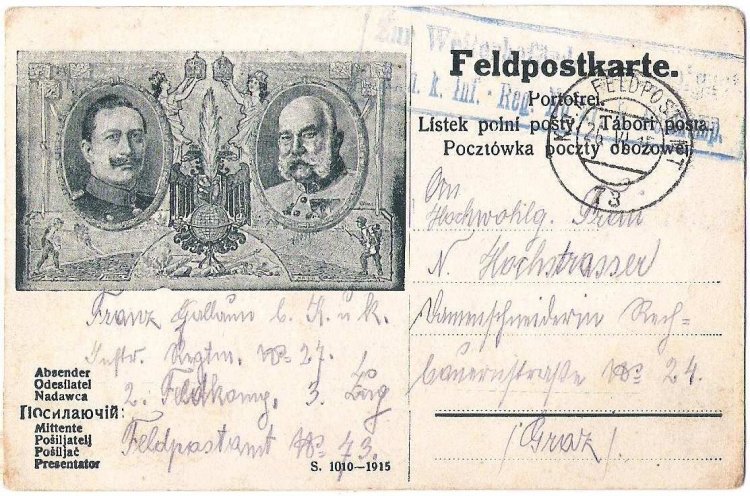 Feldpostkarte.
Portofrei.
Listek polní posty. Tábori posta.
Pocztówka poczty obozowej.
FELDPOSTAMT
73
An
Hochwohlg. Frau
N. Hochstrasser
Damenschneiderin Rech-
bauernstraße No 24.
(Graz)
Franz b. K. u. k.
Inftr. Regtm. No 27.
2. Feldkomp. 3. Zug
Feldpostamt No 73.
Absender
Odesílatel
Nadawca
Посилаючій:
Mittente
Pošiljatelj
Pošiljač
Presentator
S. 1010—1915